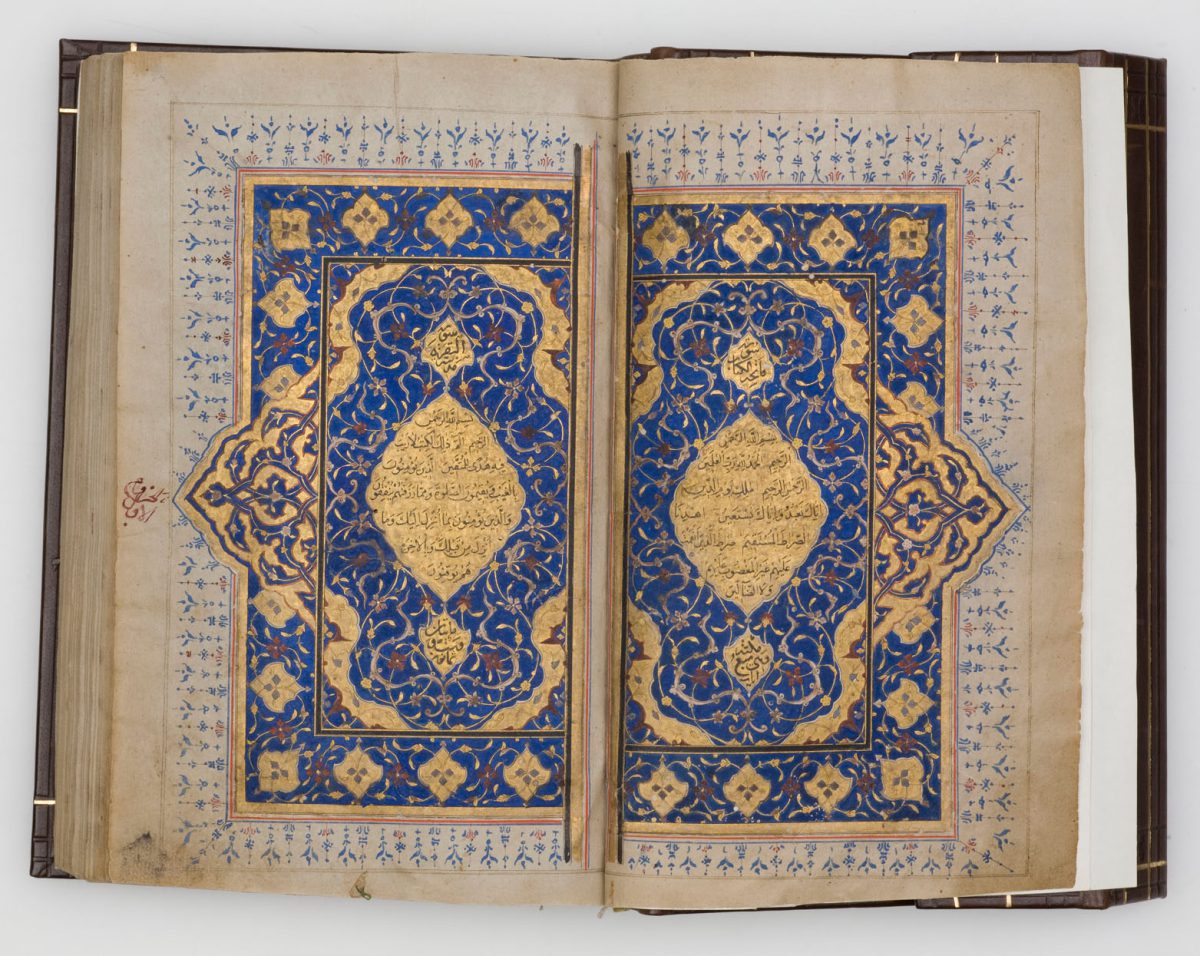 سورة
فاتحة الكتاب
بسم الله الرحمن
الرحيم الحمد لله رب العلمين
الرحمن الرحيم ملك يوم الدين
اياك نعبد واياك نستعين اهدنا
الصرط المستقيم صرط الذين انعمت
عليهم غير المغضوب عليهم
ولا الضآلين
مكية
وهي سبع
سورة
البقرة
بسم الله الرحمن
الرحيم الم ذلك الكتب لا ريب
فيه هدى للمتقين الذين يؤمنون
بالغيب ويقيمون الصلوة ومما رزقنهم ينفقون
والذين يؤمنون بما انزل اليك وما
انزل من قبلك وبالاخرة
هم يوقنون